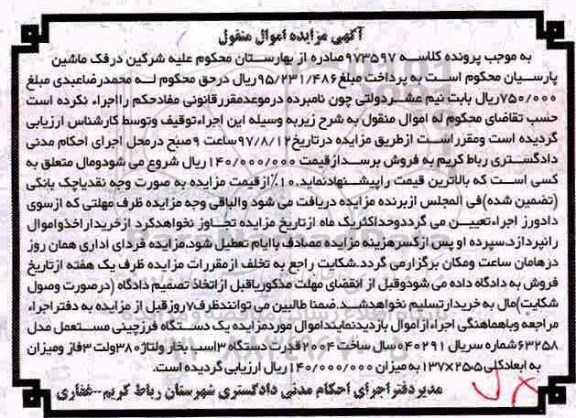 آگهی مزایده اموال منقول
به موجب پرونده کلاسه ۹۷۳۵۹۷صادره از بهارستان محکوم علیه شرکین درفک ماشین
پارسیان محکوم است به پرداخت مبلغ۹۵/۲۳۱/۴۸۶ریال درحق محکوم لـه محمدرضاعبدی مبلغ
۷۵۰/۰۰۰ریال بابت نیم عشـردولتی چون نامبرده درموعدمقررقانونی مفادحکم رااجراء نکرده است
حسب تقاضای محکوم له اموال منقول به شرح زیربه وسیله این اجراءتوقیف وتوسط کارشناس ارزیابی
گردیده است ومقرراست ازطریق مزایده درتاریخ۹۷/۸/۱۲ساعت ۹صبح درمحل اجرای احکام مدنی
دادگستری رباط کریم به فروش برسدازقیمت ۱۴۰/۰۰۰/۰۰۰ریال شروع می شودومال متعلق به
کسی است که بالاترین قیمت راپیشنهادنماید.۱۰٪ازقیمت مزایده به صورت وجه نقدیاچک بانکی
(تضمین شده)فی المجلس ازبرنده مزایده دریافت می شود والباقی وجه مزایده ظرف مهلتی که ازسوی
دادورز اجراءتعیین می گرددوحداکثریک ماه ازتاریخ مزایده تجاوز نخواهدکرد ازخریداراخذواموال
رانپردازد.سپرده او پس ازکسرهزینه مزایده مصادف باایام تعطیل شود.مزایده فردای اداری همان روز
درهامان ساعت ومکان برگزارمی گردد.شکایت راجع به تخلف ازمقررات مزایده ظرف یک هفته ازتاریخ
فروش به دادگاه داده می شودوقبل از انقضای مهلت مذکوریاقبل ازاتخاذ تصمیم دادگاه (درصورت وصول
شکایت)مال به خریدارتسلیم نخواهدشد.ضمنا طالبین می توانندظرف۷روزقبل از مزایده به دفتراجراء
مراجعه وباهماهنگی اجراءازاموال بازدیدنمایند.اموال موردمزایده یک دستگاه فرزچینی مستعمل مدل
۶۳۲۵۸شماره سریال ۰۴۰۲۹۱سال ساخت ۲۰۰۴قدرت دستگاه ۳اسب بخار ولتاژ۳۸۰ولت ۳فاز ومیزان
به ابعادکلی ۲۵۵×۱۳۷به میزان ۱۴۰/۰۰۰/۰۰۰ریال ارزیابی گردیده است.
مدیردفتراجرای احکام مدنی دادگستری شهرستان رباط کریم-غفاری